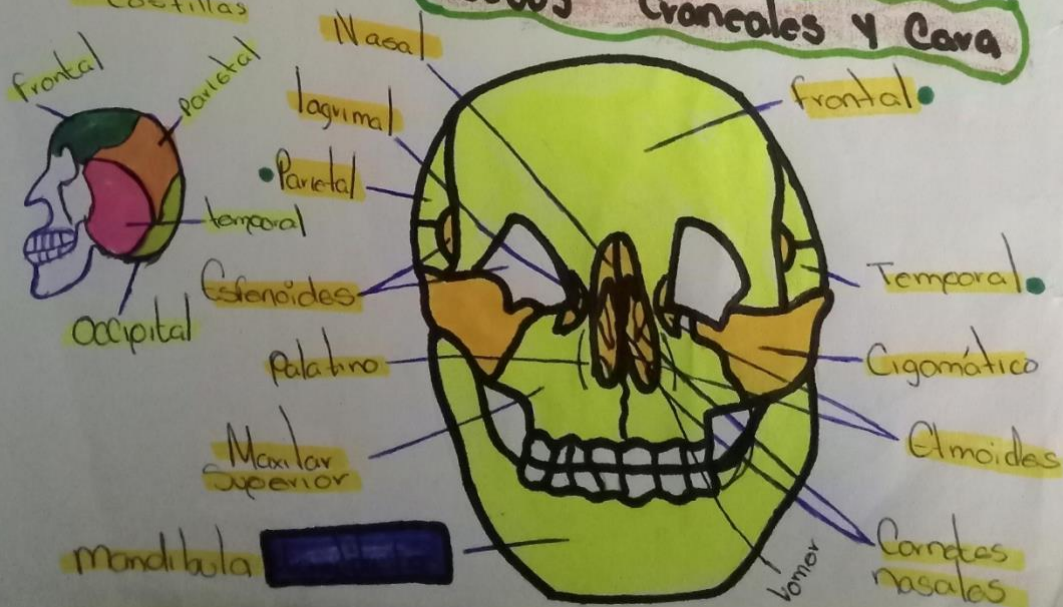 Costillas
Craneales y Cara
frontal
parietal
temporal
occipital
Nasal
lagrimal
Parietal
Esfenoides
palatino
Maxilar
superior
mandibula
frontal
Temporal
Cigomático
Etmoides
Cornetes
nasales
bomer